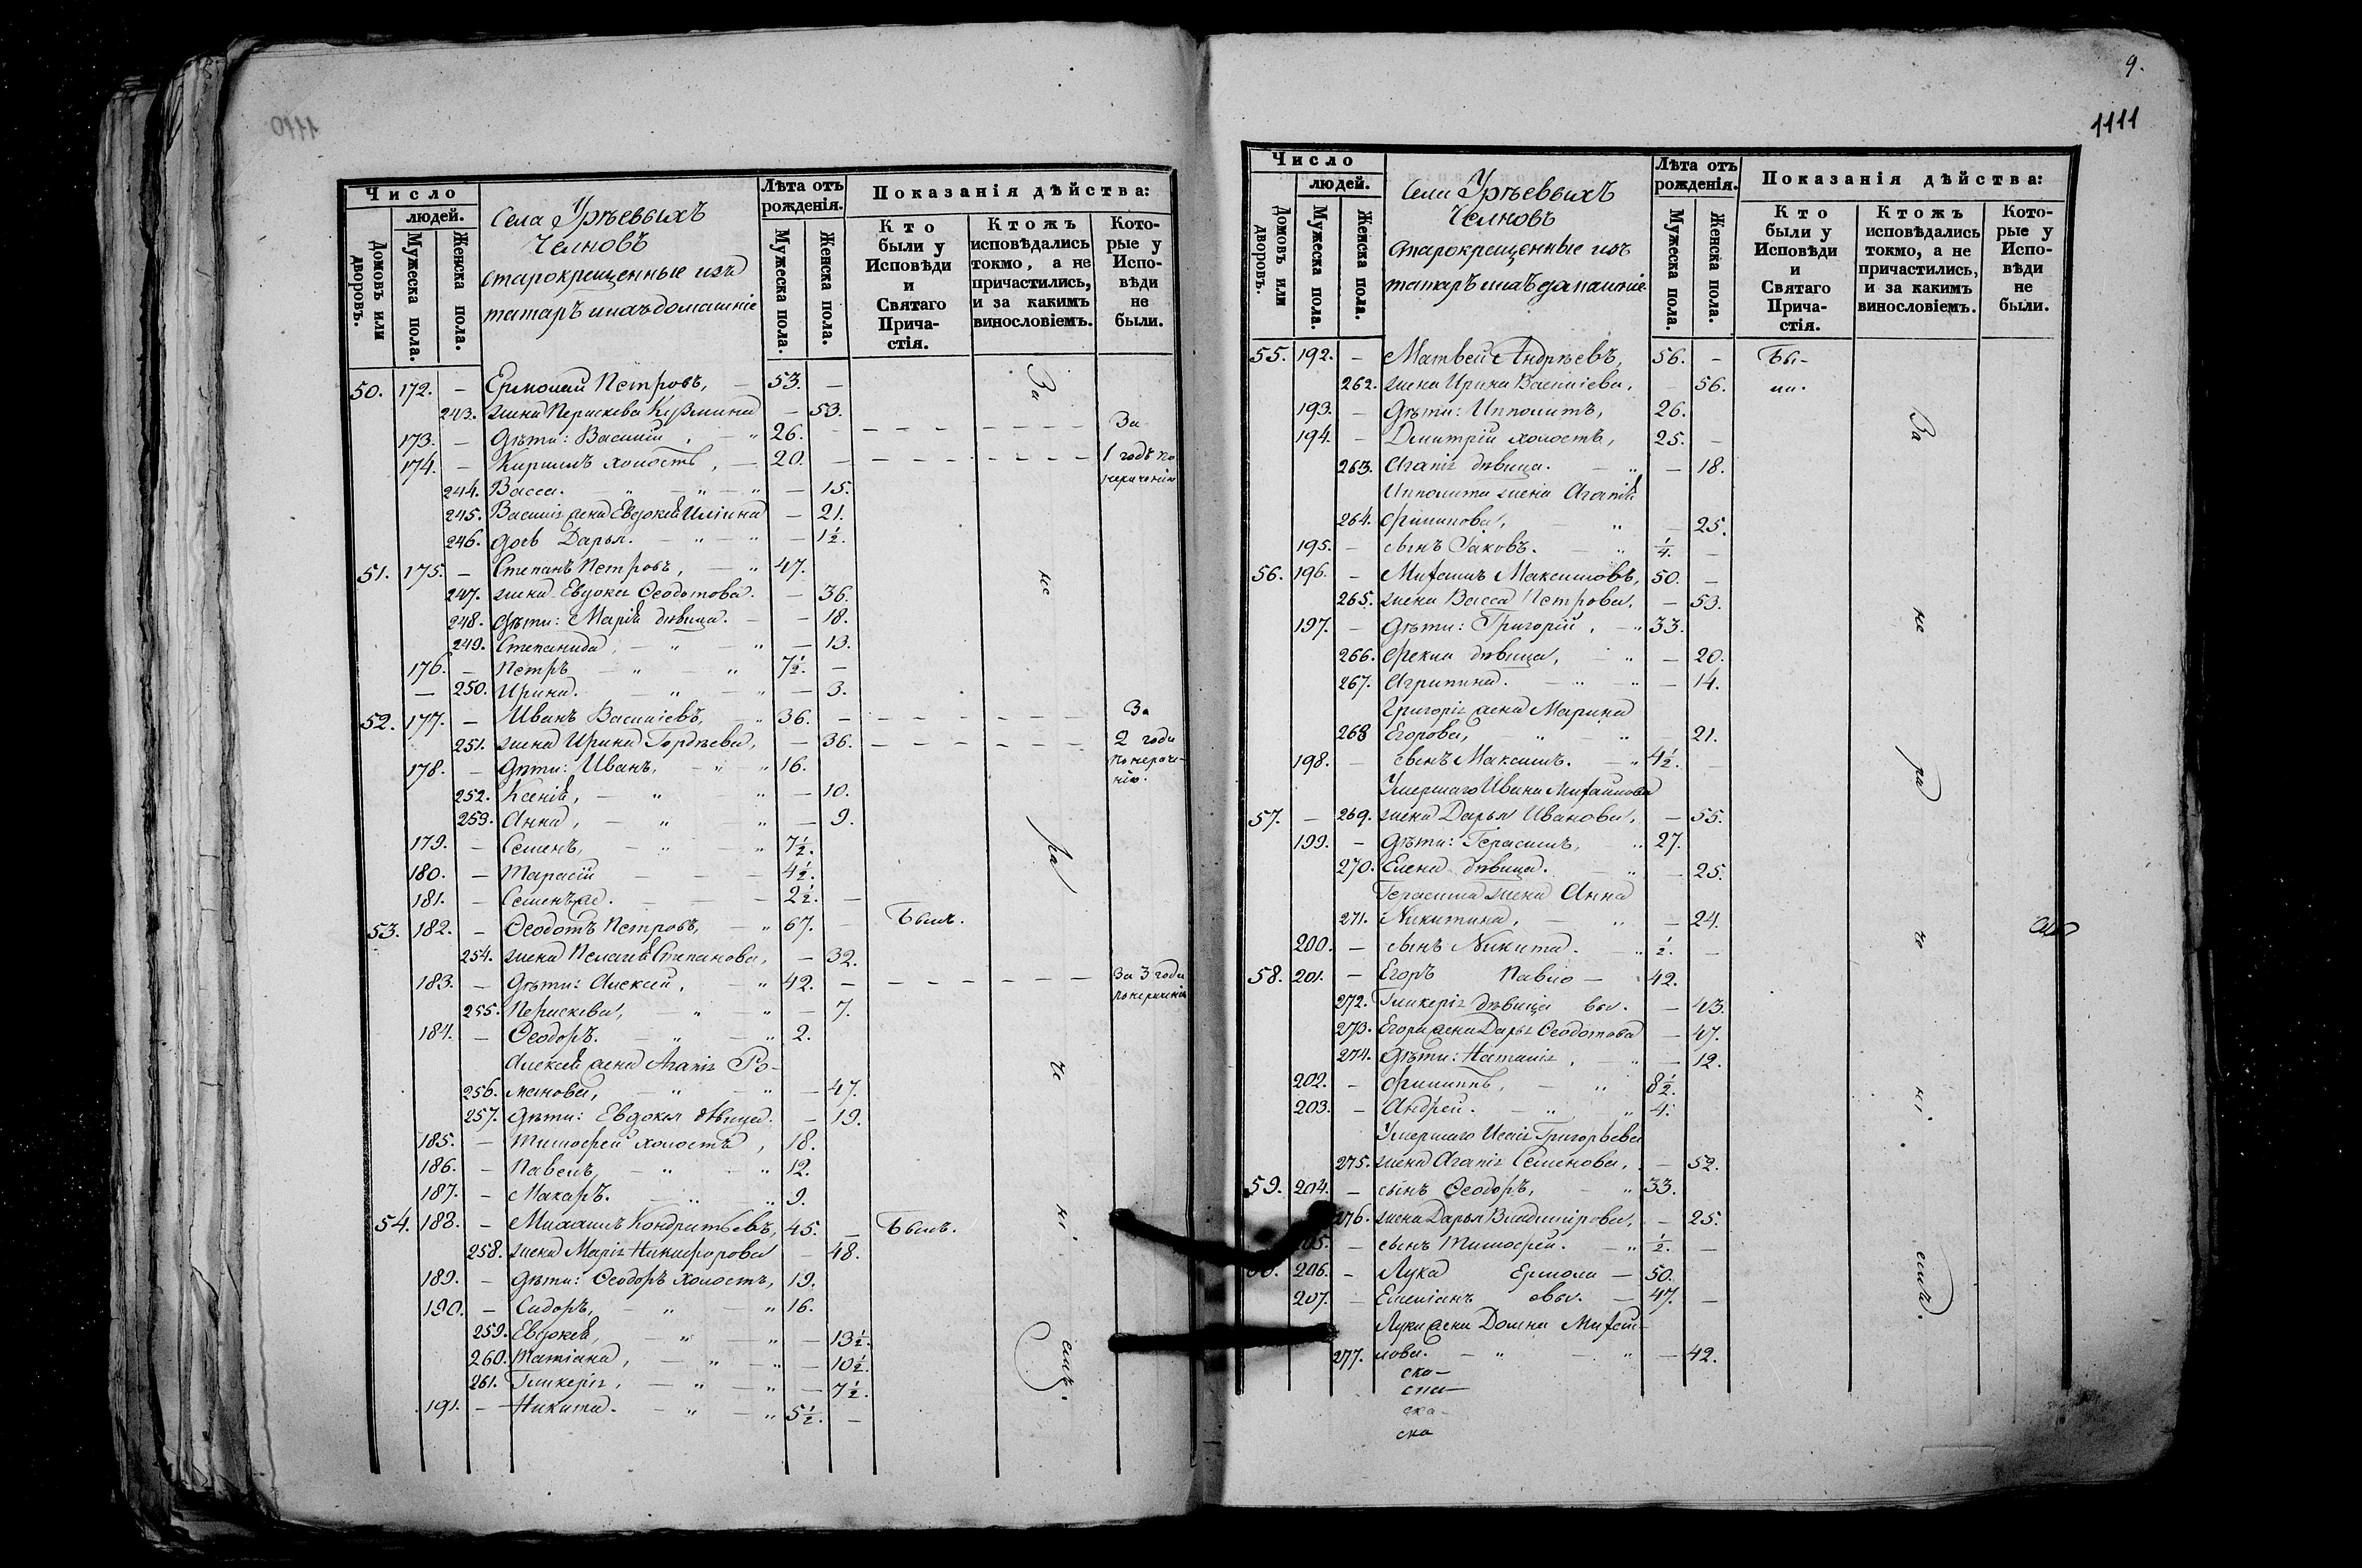 1110
Число
людей.
Домовъ или дворовъ.
Мужеска пола.
Женска пола.
Села Урѣевыхъ
Челновъ
старокрещенные изъ
татаръ и ихъ домашніе
Лѣта отъ
рожденія.
Мужеска пола.
Женска пола.
Показанія дѣйства:
Кто
были у
Исповѣди
и
Святаго
Прича-
стія.
Ктожъ
исповѣдались
токмо, а не
причастились,
и за какимъ
винословіемъ.
Кото-
рые у
Испо-
вѣди
не
были.
50. 172. – Ермолай Петровъ, – 53. –
243. жена Перискева Кузмина – 53.
173. – Дѣти: Василій, – " 26. – За
174. – Кирилъ холостъ, – 20. – 1 годъ по
244. Васса. – " – " – " – 15. нераченію
245. Василія жена Евдокія Иліина – 21.
246. дочь Дарья. – " – " – 1½.
51. 175. – Степанъ Петровъ, – " 47.
247. жена Евдокія Ѳеодотова. – 36.
248. Дѣти: Марія дѣвица. – – 18.
249. Степанида, – " – " – 13.
176. – Петръ – " – " 7½. –
– 250. Ирина. – " – " – 3.
52. 177. – Иванъ Василіевъ, – " 36. – За
251. жена Ирина Гордѣева, – 36. – 2 года
178. – Дѣти: Иванъ, – " – " 16. по нераче-
нію.
252. Ксенія, – " – " – 10.
253. Анна, – " – " – 9.
179. – Семенъ, – " – " 7½.
180. – Тарасій – – – 4½.
181. – Семенъ же. – – – 2½. –
53. 182. – Ѳеодотъ Петровъ, – " 67. – Былъ.
254. жена Пелагія Степанова, – 32.
183. – Дѣти: Алексей, – " 42. – За 3 года
по нераченію
255. Перискева, – " – " – 7.
184. – Ѳеодоръ. – " – " 2.
Алексея жена Агапія Ро-
256. манова, – " – " – 47.
257. Дѣти: Евдокія дѣвица. – 19.
185. – Тимофей холостъ, 18.
186. – Павелъ, – " – " 12.
187. – Макаръ. – " – " 9.
54. 188. – Михаилъ Кондратьевъ, 45. – Былъ.
258. жена Марія Никифорова – 48.
189. – Дѣти: Ѳеодоръ холостъ, 19.
190. – Сидоръ, – " – " 16.
259. Евдокія, – " – " – 13½.
260. Татіана, – " – " – 10½.
261. Гликерія, – " – " – 7½.
191. – Никита. – " – " 5½. –
За не ра че ні емъ.
9.
1111
Число
людей.
Домовъ или дворовъ.
Мужеска пола.
Женска пола.
Села Урѣевыхъ
Челновъ
старокрещенные изъ
татаръ и ихъ домашніе
Лѣта отъ
рожденія.
Мужеска пола.
Женска пола.
Показанія дѣйства:
Кто
были у
Исповѣди
и
Святаго
Прича-
стія.
Ктожъ
исповѣдались
токмо, а не
причастились,
и за какимъ
винословіемъ.
Кото-
рые у
Испо-
вѣди
не
были.
55. 192. – Матвей Андреевъ, 56. – Бы-
262. жена Ирина Василіева, – 56. ли.
193. – Дѣти: Ипполитъ, 26.
194. – Дмитрій холостъ, 25. –
263. Агапія дѣвица. – " – 18.
Ипполита жена Агапія
264. Филипова, – " – 25.
195. – сынъ Іаковъ. – " ¼. –
56. 196. – Михаилъ Максимовъ, 50. –
265. жена Васса Петрова, – 53.
197. – Дѣти: Григорій, – " 33.
266. Фекла дѣвица, – " – 20.
267. Агрипина. – " – " – 14.
Григорія жена Марина
268 Егорова, – " – " – 21.
198. – сынъ Максимъ. – " 4½. –
Умершаго Ивана Михайлова
57. – 269. жена Дарья Иванова, – 55.
199. – Дѣти: Герасимъ, " 27.
270. Елена дѣвица. – " – 25.
Герасима жена Анна
271. Никитина, – " – 24.
200. – сынъ Никита. – " ½. –
58. 201. – Егоръ Павло – 42.
272. Гликерія дѣвица вы. – 43.
273. Егора жена Дарья Ѳеодотова – 47.
274. Дѣти: Наталія, – " – 12.
202. – Филиппъ, – " 8½.
203. – Андрей. – " " 4.
Умершаго Исаія Григорьева
275. жена Агапія Семенова, – 52.
59. 204. – сынъ Ѳеодоръ, – " 33.
276. жена Дарья Владимірова, – 25.
205. – сынъ Тимофей. – " ½. –
206. – Лука Ермола – 50.
207. – Емеліанъ евы. – 47. –
Луки жена Домна Михай-
277. лова. – " – " – 42.
За не ра че ні емъ.